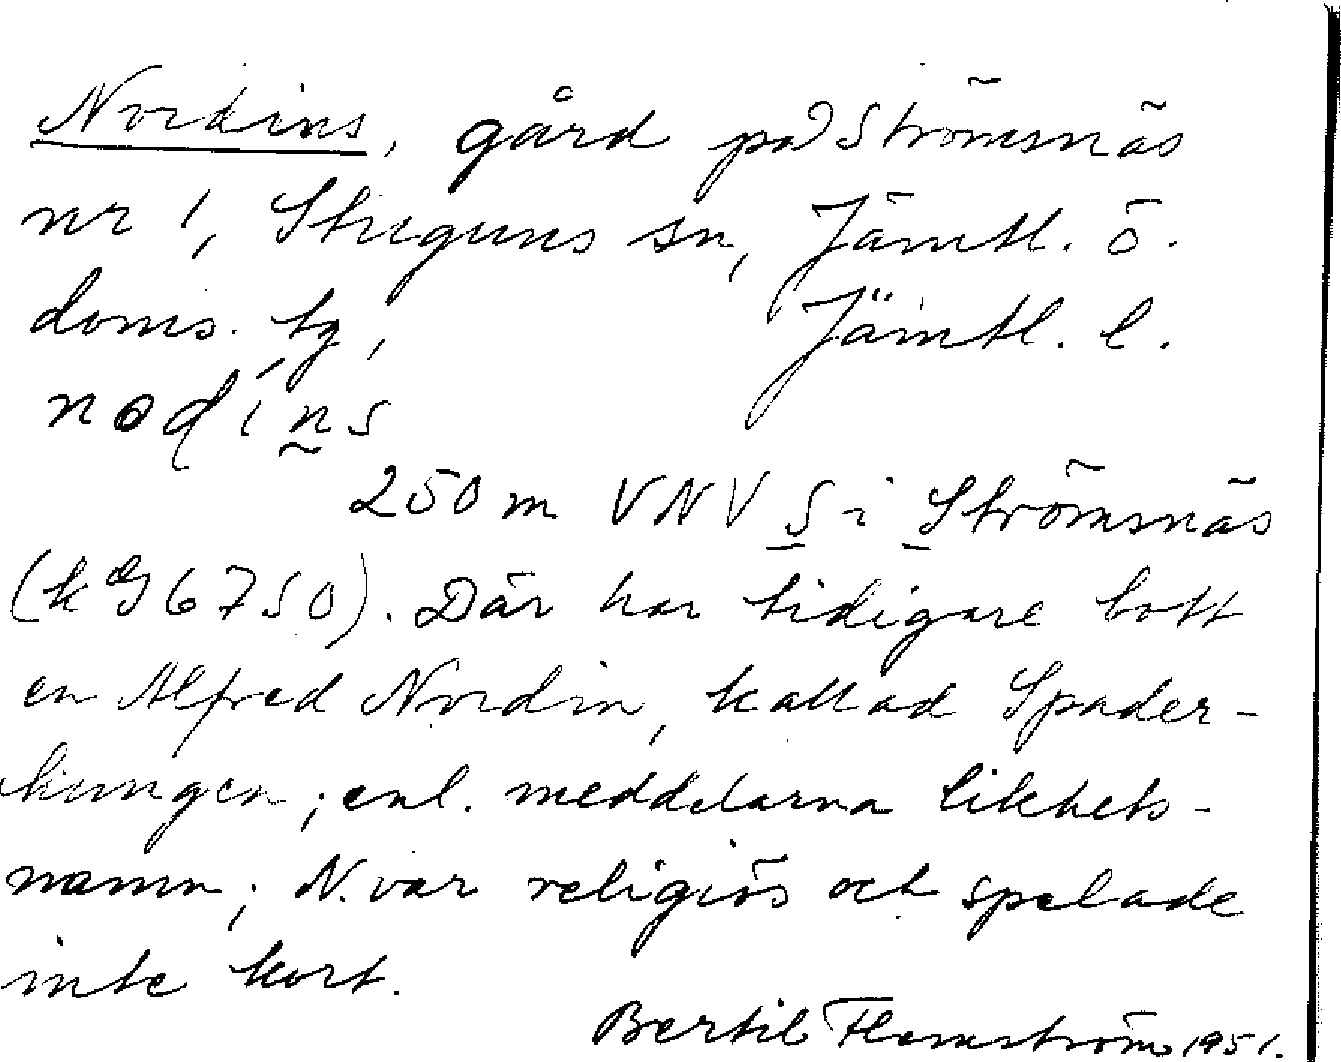 Nordins, gård på Strömnäs
nr 1, Stuguns sn, Jämtl. ö.
doms. tg, Jämtl. l.
nodíns
250 m VNV S i Strömsnäs
(kG 6750). Där har tidigare bott
en Alfred Nordin, kallad Spader-
kungen; enl. meddelarna likhets-
namn; N. var religiös och spelade
inte kort.
Bertil Flemström 1951.